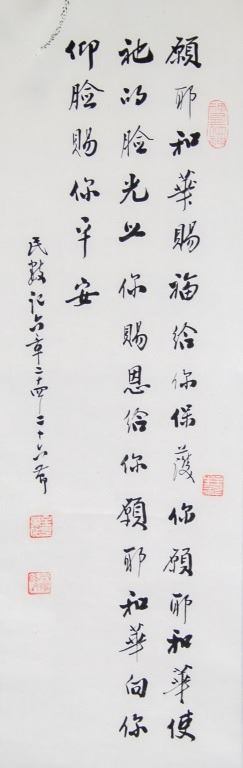 願耶和華賜福給你保護你願耶和華使
祂的臉光照你賜恩給你願耶和華向你
仰臉賜你平安
民數記六章二十四-二十六節